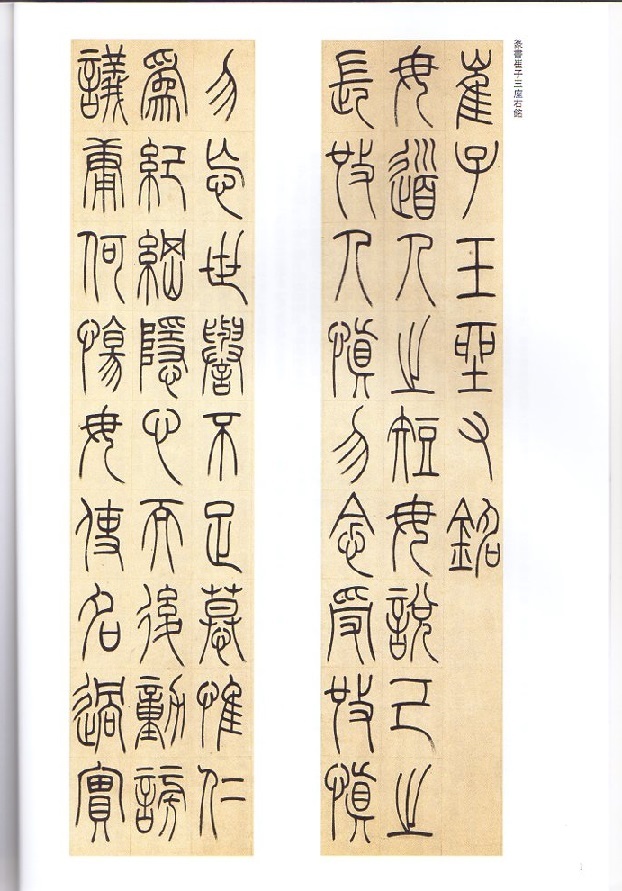 篆書崔子玉座右銘
崔子玉座右銘
毋道人之短毋說己之
長施人慎勿念受施慎
勿忘世譽不足慕惟仁
爲紀綱隱心而後動謗
議庸何傷毋使名過實